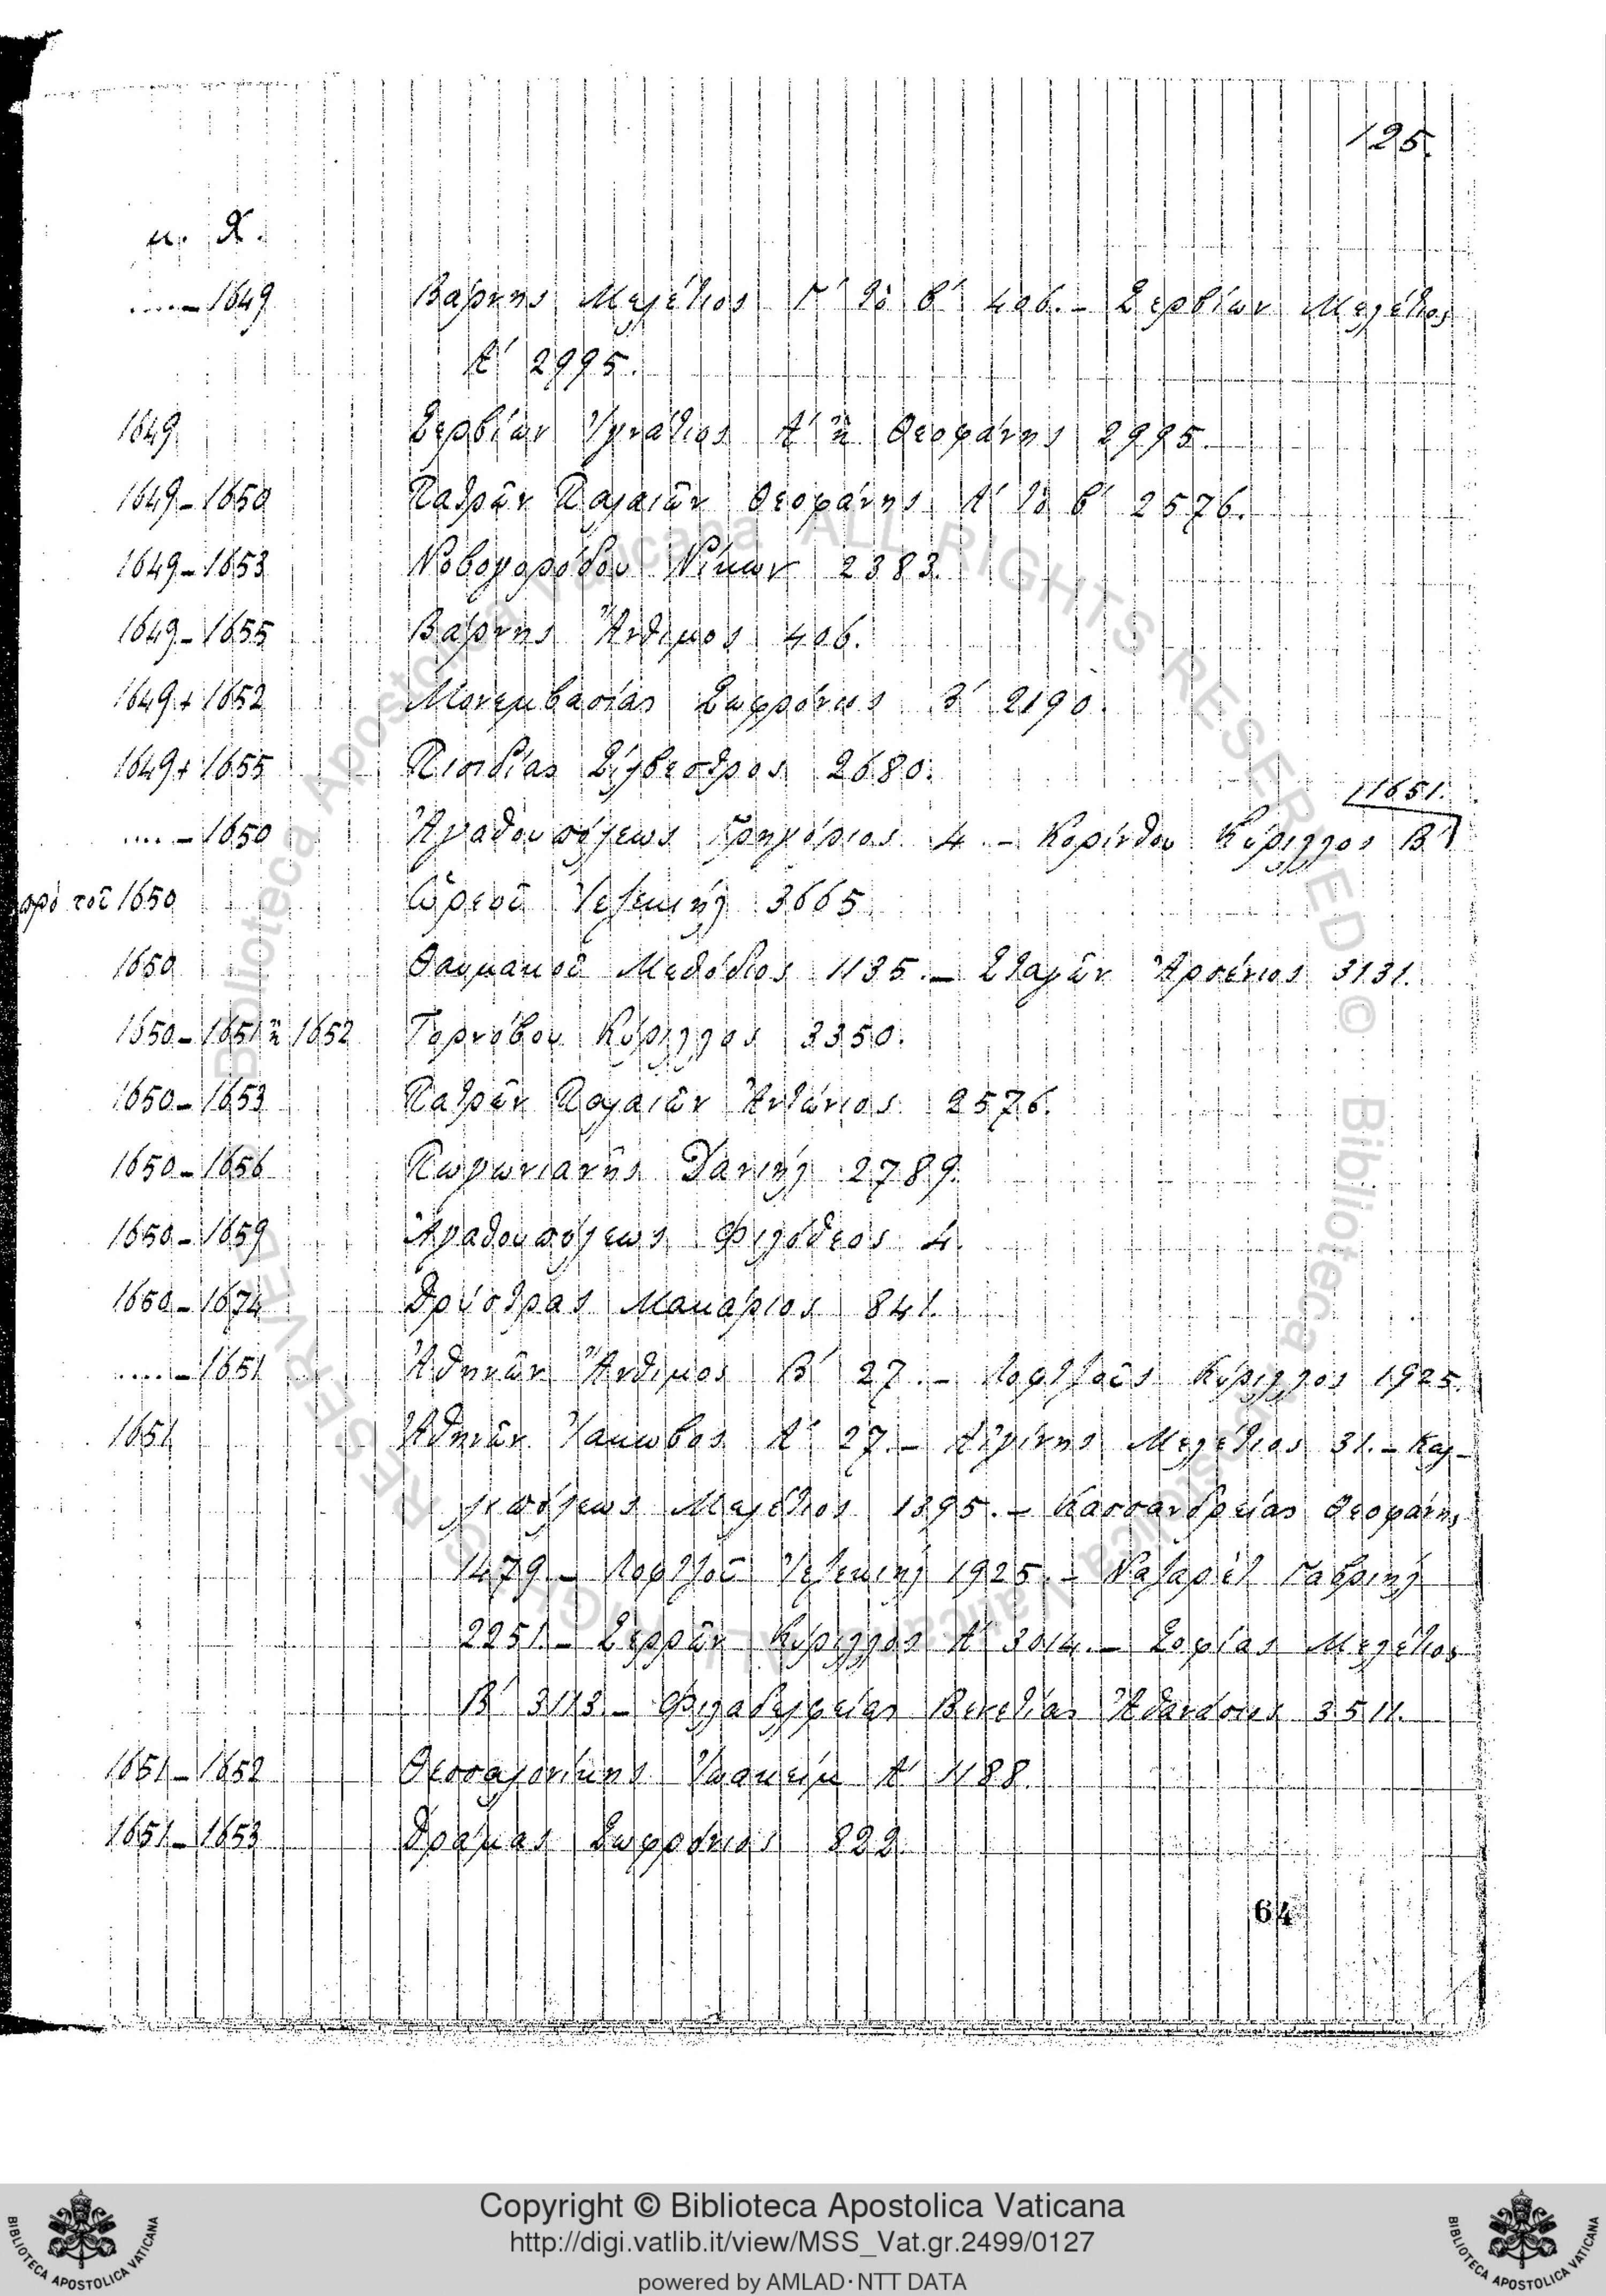 125.
μ. Χ.
.... – 1649 Βάρνης Μελέτιος Γ' τὸ β' 406. – Σερβίων Μελέτιος
Α' 2995.
1649 Σερβίων Ἰγνάτιος Α' ἢ Θεοφάνης 2995.
1649 – 1650 Πατρῶν Παλαιῶν Θεοφάνης Α' τὸ β' 2576.
1649 – 1653 Νοβογορόδου Νίκων 2383.
1649 – 1655 Βάρνης Ἄνθιμος 406.
1649 + 1652 Μονεμβασίας Σωφρόνιος 2190.
1649 + 1655 Πισιδίας Σίλβεστρος 2680.
1651.
.... – 1650 Ἀγαθουπόλεως Γρηγόριος 4. – Κορίνθου Κύριλλος Β'
πρὸ τοῦ 1650 Ὠρεοῦ Ἰεζεκιὴλ 3665
1650 Θαυμακοῦ Μεθόδιος 1135. – Σταγῶν Ἀρσένιος 3131.
1650 – 1651 ἢ 1652 Τορνόβου Κύριλλος 3350.
1650 – 1653 Πατρῶν Παλαιῶν Ἀντώνιος 2576.
1650 – 1656 Πωγωνιανῆς Δανιὴλ 2789.
1650 – 1659 Ἀγαθουπόλεως Φιλόθεος 4.
1650 – 1674 Δρύστρας Μακάριος 841.
.... – 1651 Ἀθηνῶν Ἄνθιμος Β' 27. – Λοφτζοῦς Κύριλλος 1925.
1651 Ἀθηνῶν Ἰάκωβος Α' 27. – Αἰγίνης Μελέτιος 31. – Καλ–
λιπόλεως Μελέτιος 1395. – Κασσανδρείας Θεοφάνης
1479 – Λοφτζοῦ Ἰεζεκιὴλ 1925. – Ναζαρὲτ Γαβριὴλ
2251. – Σερρῶν Κύριλλος Α' 3014. – Σοφίας Μελέτιος
Β' 3113 – Φιλαδελφείας Βενετίας Ἀθανάσιος 3511.
1651 – 1652 Θεσσαλονίκης Ἰωακεὶμ Α' 1188.
1651 – 1653 Δράμας Σωφρόνιος 822
64
Biblioteca Apostolica Vaticana ALL RIGHTS RESERVED ©
Copyright © Biblioteca Apostolica Vaticana
http://digi.vatlib.it/view/MSS_Vat.gr.2499/0127
powered by AMLAD·NTT DATA
BIBLIOTECA APOSTOLICA VATICANA
BIBLIOTECA APOSTOLICA VATICANA